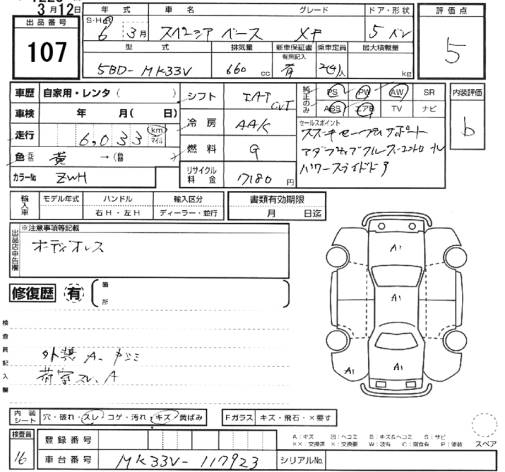 3月12日
出品番号
107
年式 車名 グレード ドア・形状
S・H・R 6年 3月 スペーシア ベース XF 5 バン
型式 排気量 新車保証書 乗車定員 最大積載量
有無記入
5BD- MK33V 660 cc 有 2(4)人 kg
評価点
5
内装評価
b
車歴 自家用・レンタ( )
車検 年 月( 日)
走行 6,033 km マイル
色 黄 →
カラーNo ZWH
シフト IAT CVT
冷房 AAC
燃料 G
リサイクル料金 17180 円
純正のみ PS PW AW SR
ABS エアB TV ナビ
セールスポイント
スズキセーフティサポート
アダプティブクルーズコントロール
パワースライドドア
輸入車 モデル年式 ハンドル 輸入区分
右H・左H ディーラー・並行
書類有効期限
月 日迄
出品店申告欄
※注意事項等記載
オーディオレス
修復歴 有 箇所
検査員記入欄
外装 A、
荷室スレ、A
A1
A1
A1
内装シート 穴・破れ・スレ・コゲ・汚れ・キズ・黄ばみ
Fガラス キズ・飛石・×要す
検査員
16
登録番号
車台番号 MK33V- 117923 シリアルNo.
A:キズ U:ヘコミ B:キズ&ヘコミ S:サビ
××:交換済 X:交換要 W:波有 C:腐食有 P:塗装
スペア